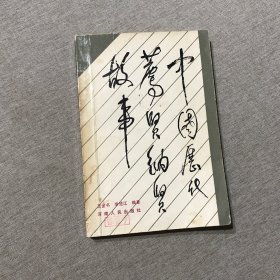 中國歷代
薦賢納賢
故事
河南人民出版社